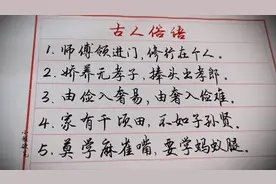 古人俗语
1. 师傅领进门，修行在个人。
2. 娇养无孝子，棒头出孝郎。
3. 由俭入奢易，由奢入俭难。
4. 家有千顷田，不如子孙贤。
5. 莫学麻雀嘴，要学蚂蚁腿。